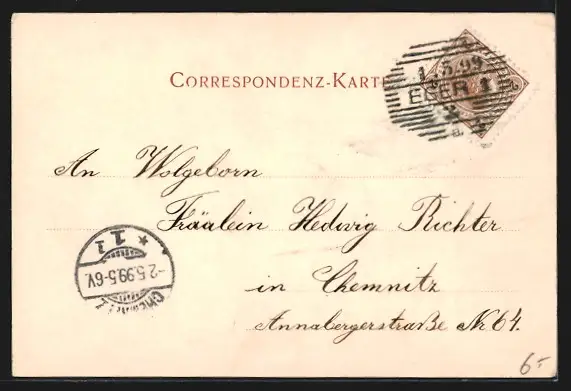 CORRESPONDENZ-KARTE
1.5.99
EGER 1
An Wolgeborn
Fräulein Hedwig Richter
in Chemnitz
Annabergerstraße № 64.
* 1
-2.5.99.5-6V.
CHEMNITZ
6-